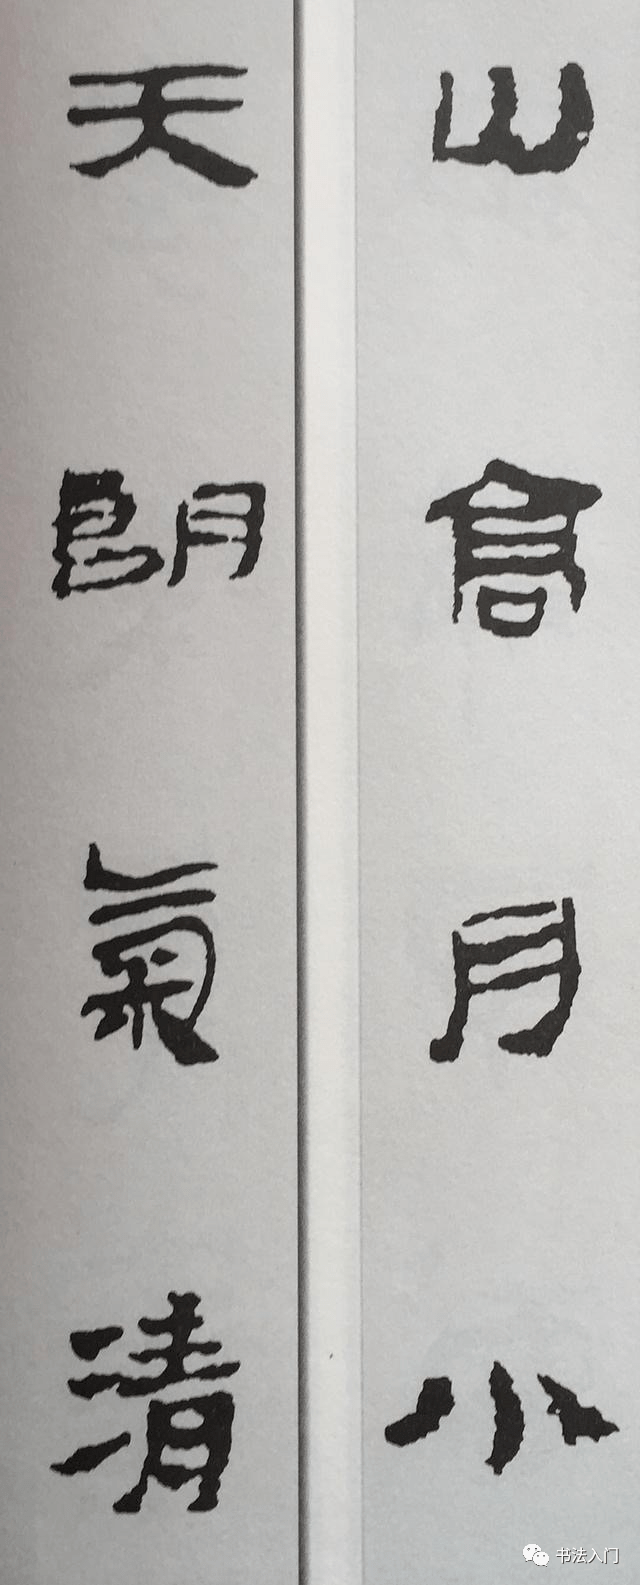 山高月小
天朗氣清
书法入门